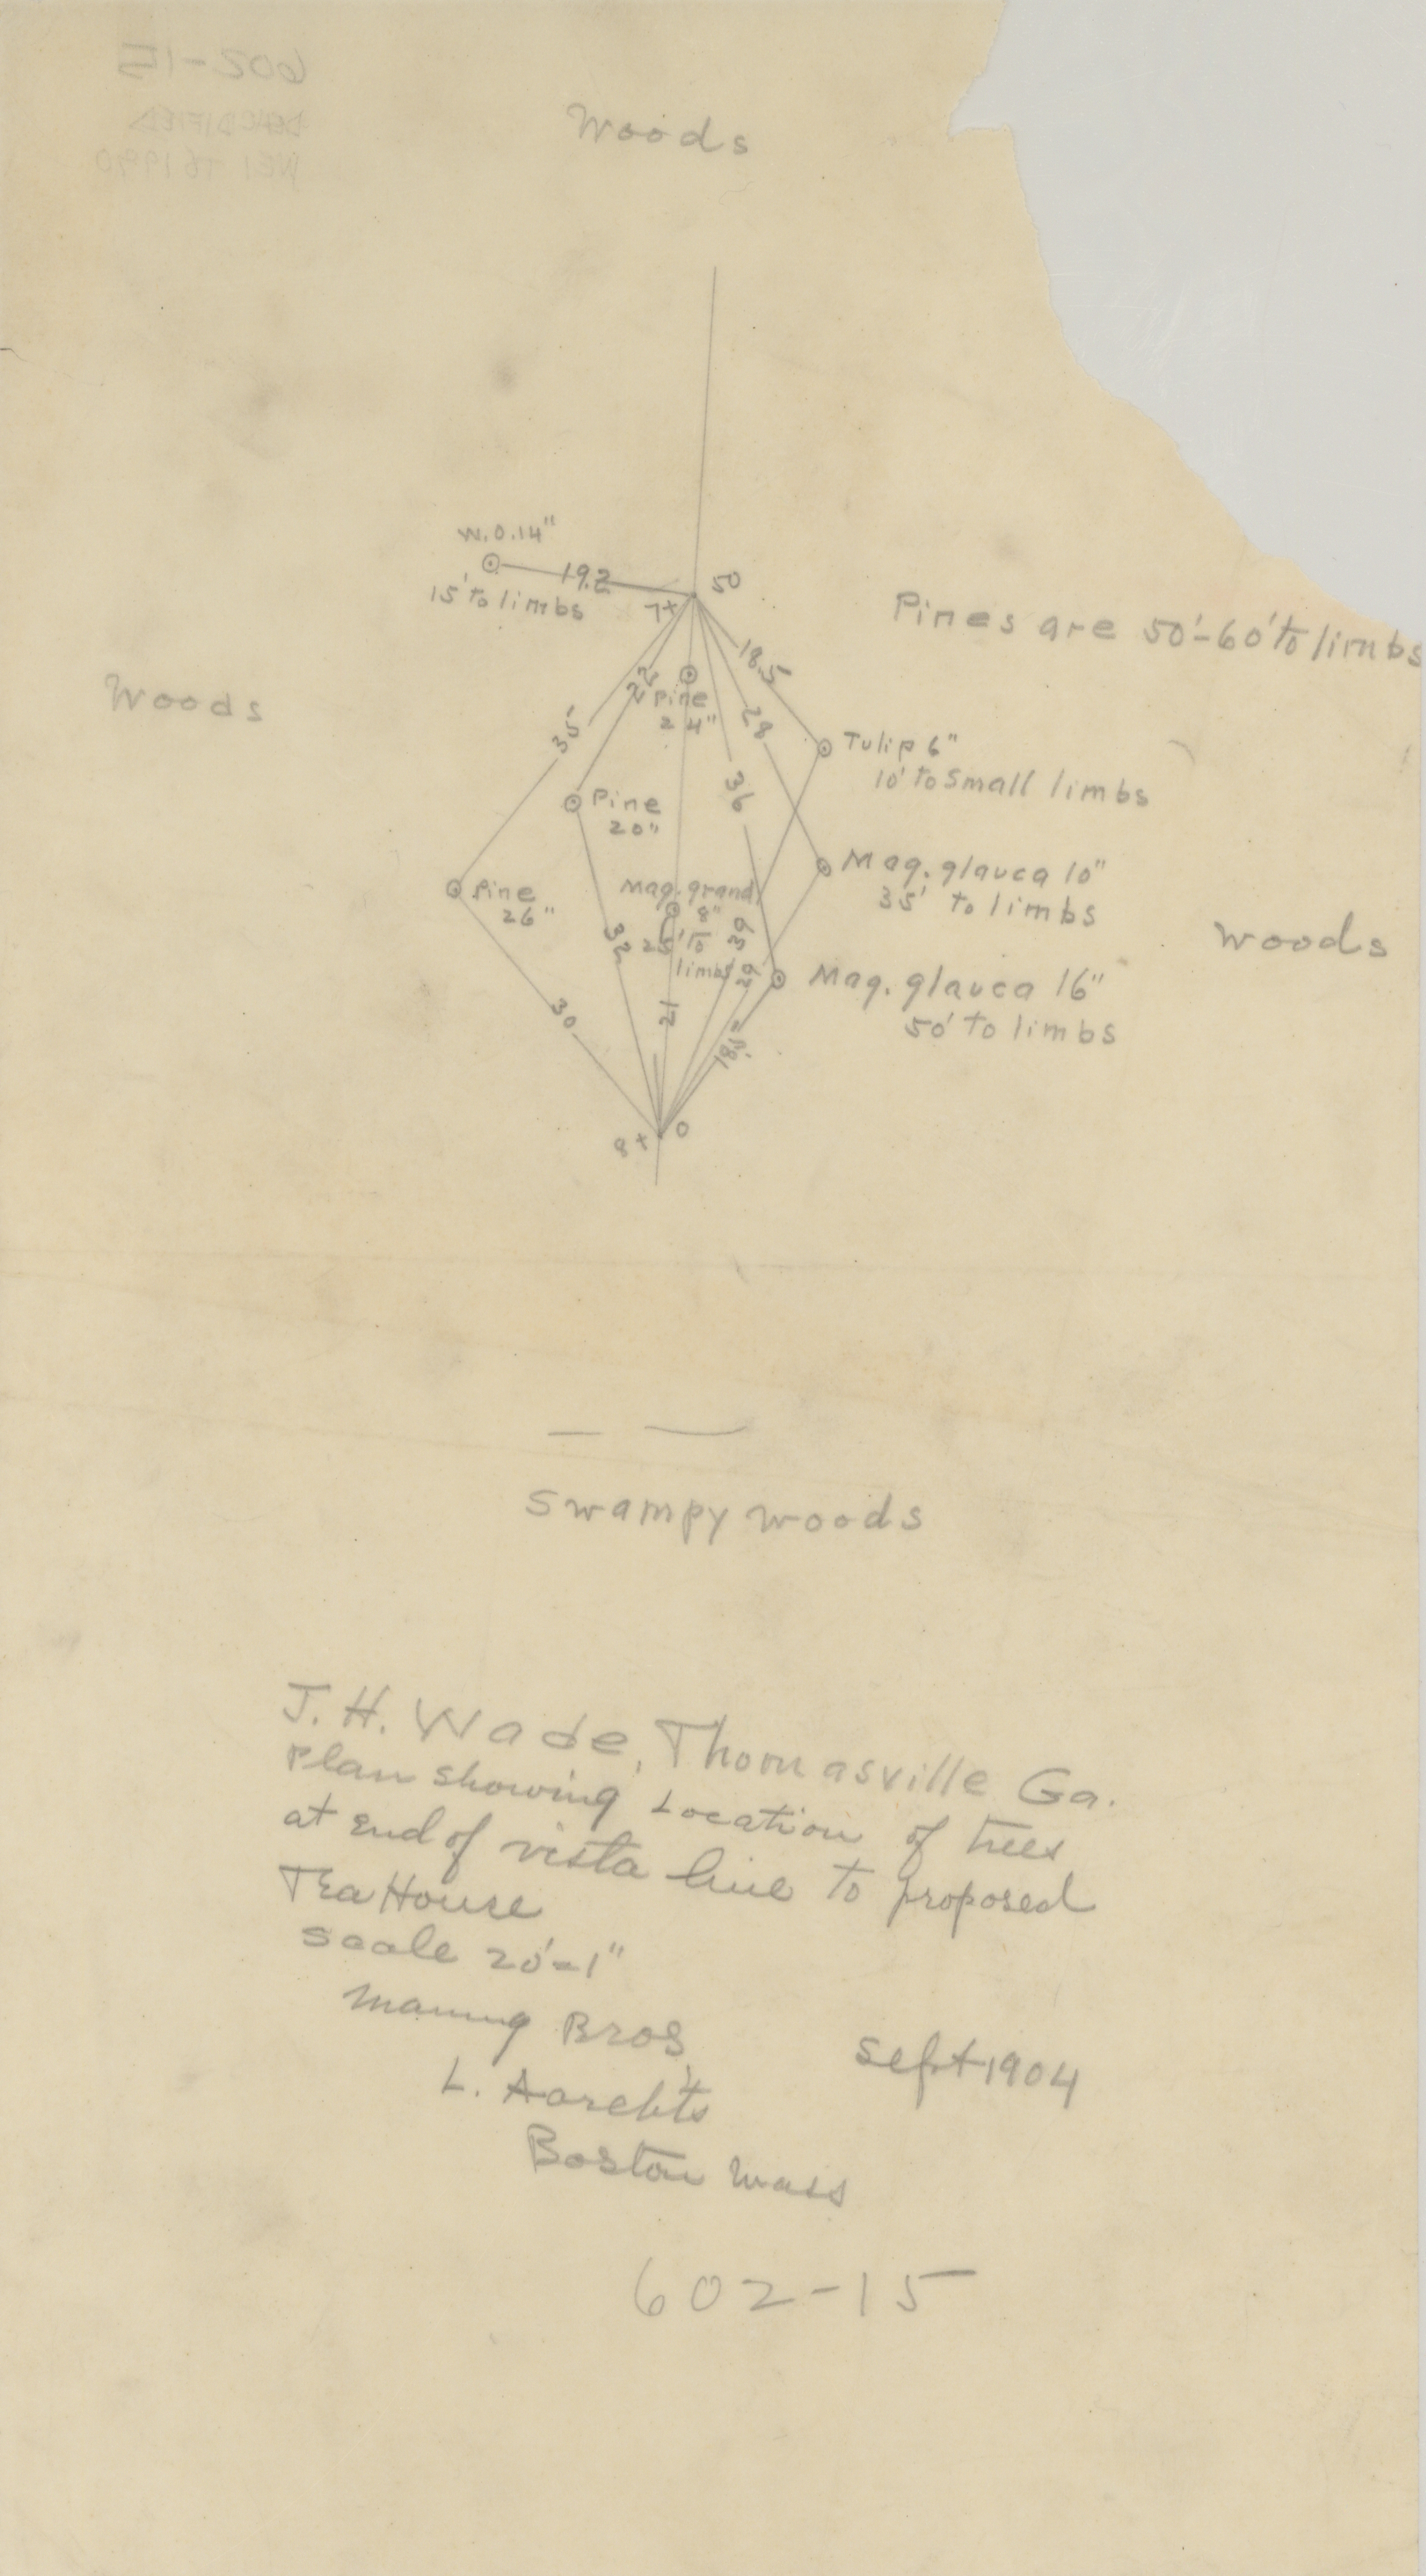 Woods
W.O.14"
19.2
50
15' to limbs
7+
Pines are 50'-60' to limbs
18.5
22
Pine
24"
Woods
28
35
Tulip 6"
10' to Small limbs
36
Pine
20"
Mag. glauca 10"
35' to limbs
Pine
26"
Mag. grand.
8"
25' to
limbs
32
39
29
Woods
Mag. glauca 16"
50' to limbs
30
21
18.5
8+
0
Swampy woods
J. H. Wade, Thomasville Ga.
Plan showing Location of trees
at End of vista line to proposed
Tea House
Scale 20'=1"
Manning Bros,
Sept 1904
L. Aarchts
Boston Mass
602-15